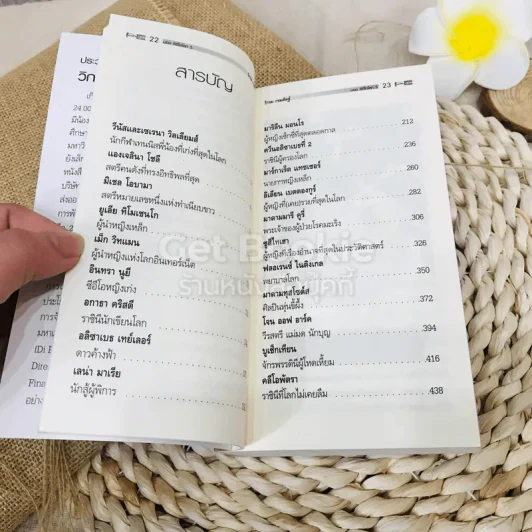 22
สารบัญ
วีนัสและเซเรนา วิลเลียมส์
นักกีฬาเทนนิสพี่น้องที่เก่งที่สุดในโลก
แองเจลินา โชลี
สตรีคนดังที่ทรงอิทธิพลที่สุด
มิเชล โอบามา
สตรีหมายเลขหนึ่งแห่งทำเนียบขาว
ยูเลีย ทีโมเชนโก
ผู้นำหญิงเหล็ก
เม็ก วิทแมน
ผู้นำหญิงแห่งโลกอินเทอร์เน็ต
อินทรา นูยี
ซีอีโอหญิงเก่ง
อกาธา คริสตี
ราชินีนักเขียนโลก
อลิซาเบธ เทย์เลอร์
ดาวค้างฟ้า
เลน่า มาเรีย
นักสู้ผู้พิการ
23
มาริลีน มอนโร
ผู้หญิงเซ็กซี่ที่สุดตลอดกาล 212
ควีนอลิซาเบธที่ 2
ราชินีผู้ครองโลก 240
มาร์กาเร็ต แทชเชอร์
นายกฯหญิงเหล็ก 260
ลิเลียน เบตตองกูร์
ผู้หญิงที่(เคย)รวยที่สุดในโลก 282
มาดามมารี คูรี่
พระเจ้าของผู้ป่วยโรคมะเร็ง 306
ซูสีไทเฮา
ผู้หญิงที่เรืองอำนาจที่สุดในประวัติศาสตร์ 326
ฟลอเรนซ์ ไนติงเกล
พยาบาลโลก 350
มาดามทุสโซด์ส
ศิลปินหุ่นขี้ผึ้ง 372
โจน ออฟ อาร์ค
วีรสตรี แม่มด นักบุญ 394
บูเช็กเทียน
จักรพรรดินีผู้โหดเหี้ยม 416
คลีโอพัตรา
ราชินีที่โลกไม่เคยลืม 438
Get Bookie
ร้านหนังสือบุ๊คกี้